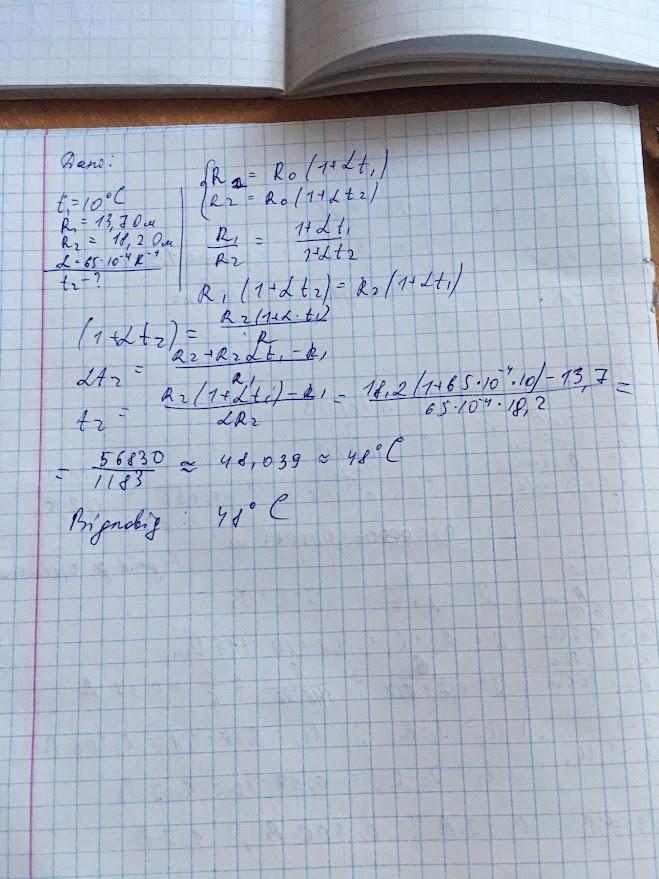 Дано:
t₁ = 10°C
R₁ = 13,7 Ом
R₂ = 18,2 Ом
α = 65·10⁻⁴ K⁻¹
t₂ - ?
{R₁ = R₀(1+αt₁)
R₂ = R₀(1+αt₂)
R₁/R₂ = (1+αt₁)/(1+αt₂)
R₁(1+αt₂) = R₂(1+αt₁)
(1+αt₂) = R₂(1+α·t₁)/R
αt₂ = (R₂+R₂αt₁-R₁)/R₁
t₂ = (R₂(1+αt₁)-R₁)/(αR₂) = (18,2(1+65·10⁻⁴·10)-13,7)/(65·10⁻⁴·18,2) =
= 56830/1183 ≈ 48,039 ≈ 48°C
Відповідь: 48°C